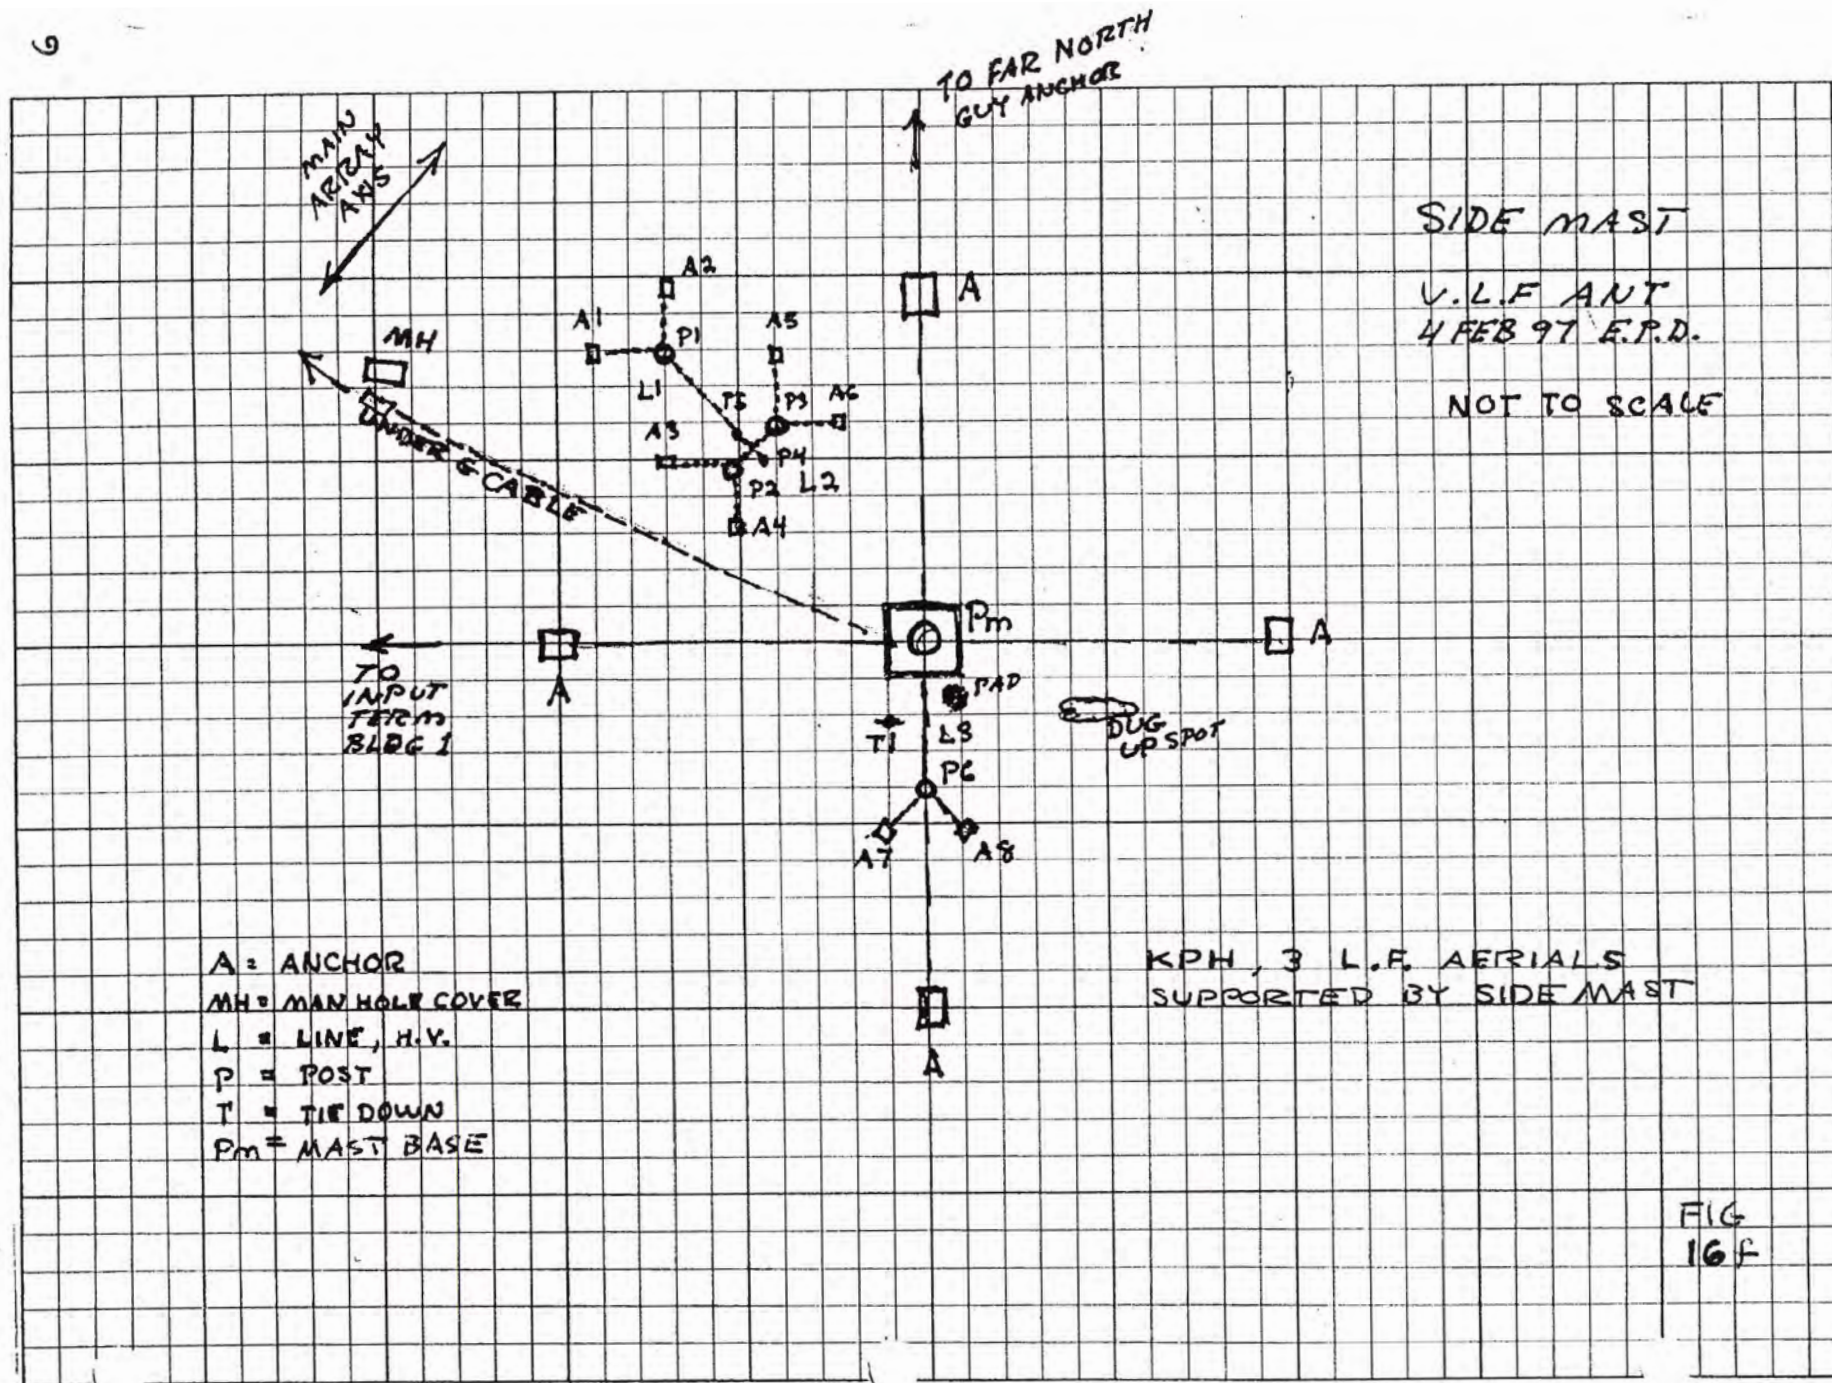 6
TO FAR NORTH
GUY ANCHOR
MAIN
ARRAY
AXIS
SIDE MAST
V.L.F ANT
4 FEB 97 E.P.D.
NOT TO SCALE
A2
A
A1
P1
A5
MH
L1
P5
P3
A6
A3
P4
UNDER G CABLE
P2
L2
A4
Pm
A
A
TO
INPUT
TERM
BLDG 1
PAD
T1
L3
DUG
UP SPOT
P6
A7
A8
A = ANCHOR
MH = MAN HOLE COVER
L = LINE, H.V.
P = POST
T = TIE DOWN
Pm = MAST BASE
KPH, 3 L.F. AERIALS
SUPPORTED BY SIDE MAST
A
FIG
16f